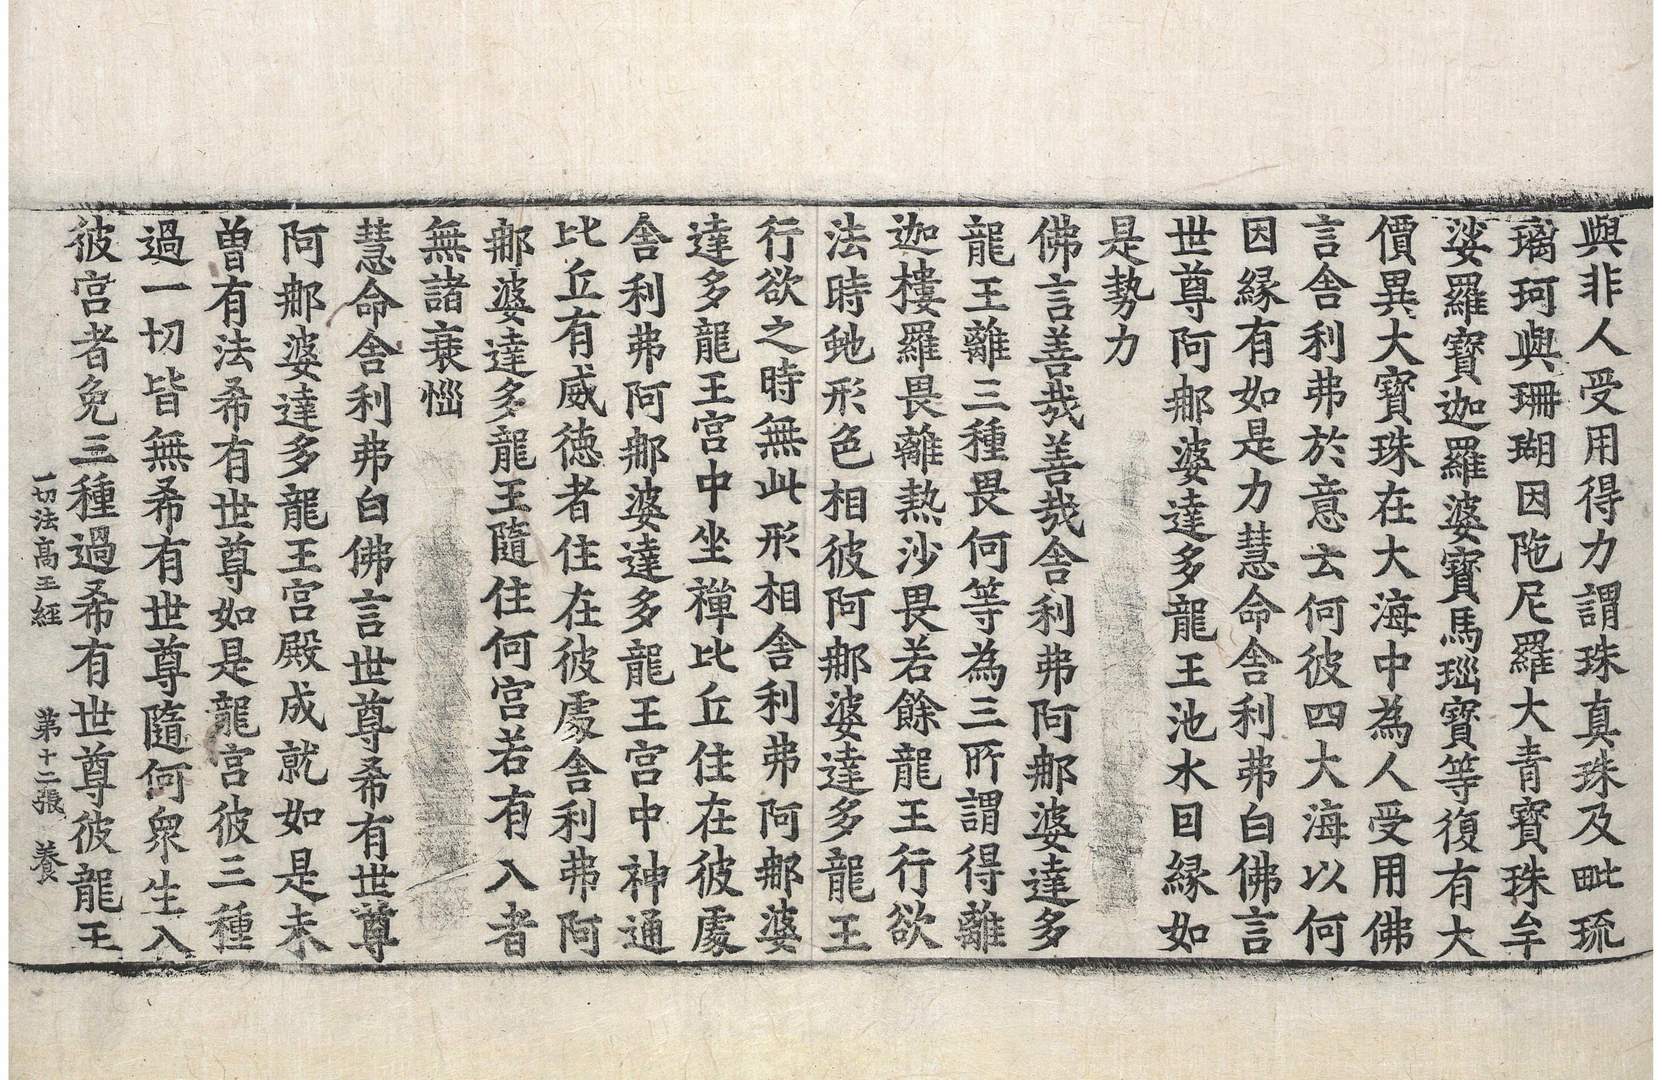 與非人受用得力謂珠真珠及毗琉
璃珂與珊瑚因陁尼羅大青寶珠牟
娑羅寶迦羅婆寶馬瑙寶等復有大
價異大寶珠在大海中為人受用佛
言舍利弗於意云何彼四大海以何
因緣有如是力慧命舍利弗白佛言
世尊阿那婆達多龍王池水因緣如
是勢力
佛言善哉善哉舍利弗阿那婆達多
龍王離三種畏何等為三所謂得離
迦樓羅畏離熱沙畏若餘龍王行欲
法時虵形色相彼阿那婆達多龍王
行欲之時無此形相舍利弗阿那婆
達多龍王宮中坐禪比丘住在彼處
舍利弗阿那婆達多龍王宮中神通
比丘有威德者住在彼處舍利弗阿
那婆達多龍王隨住何宮若有入者
無諸衰惱
慧命舍利弗白佛言世尊希有世尊
阿那婆達多龍王宮殿成就如是未
曾有法希有世尊如是龍宮彼三種
過一切皆無希有世尊隨何眾生入
彼宮者免三種過希有世尊彼龍王
一切法高王經 第十二張 養